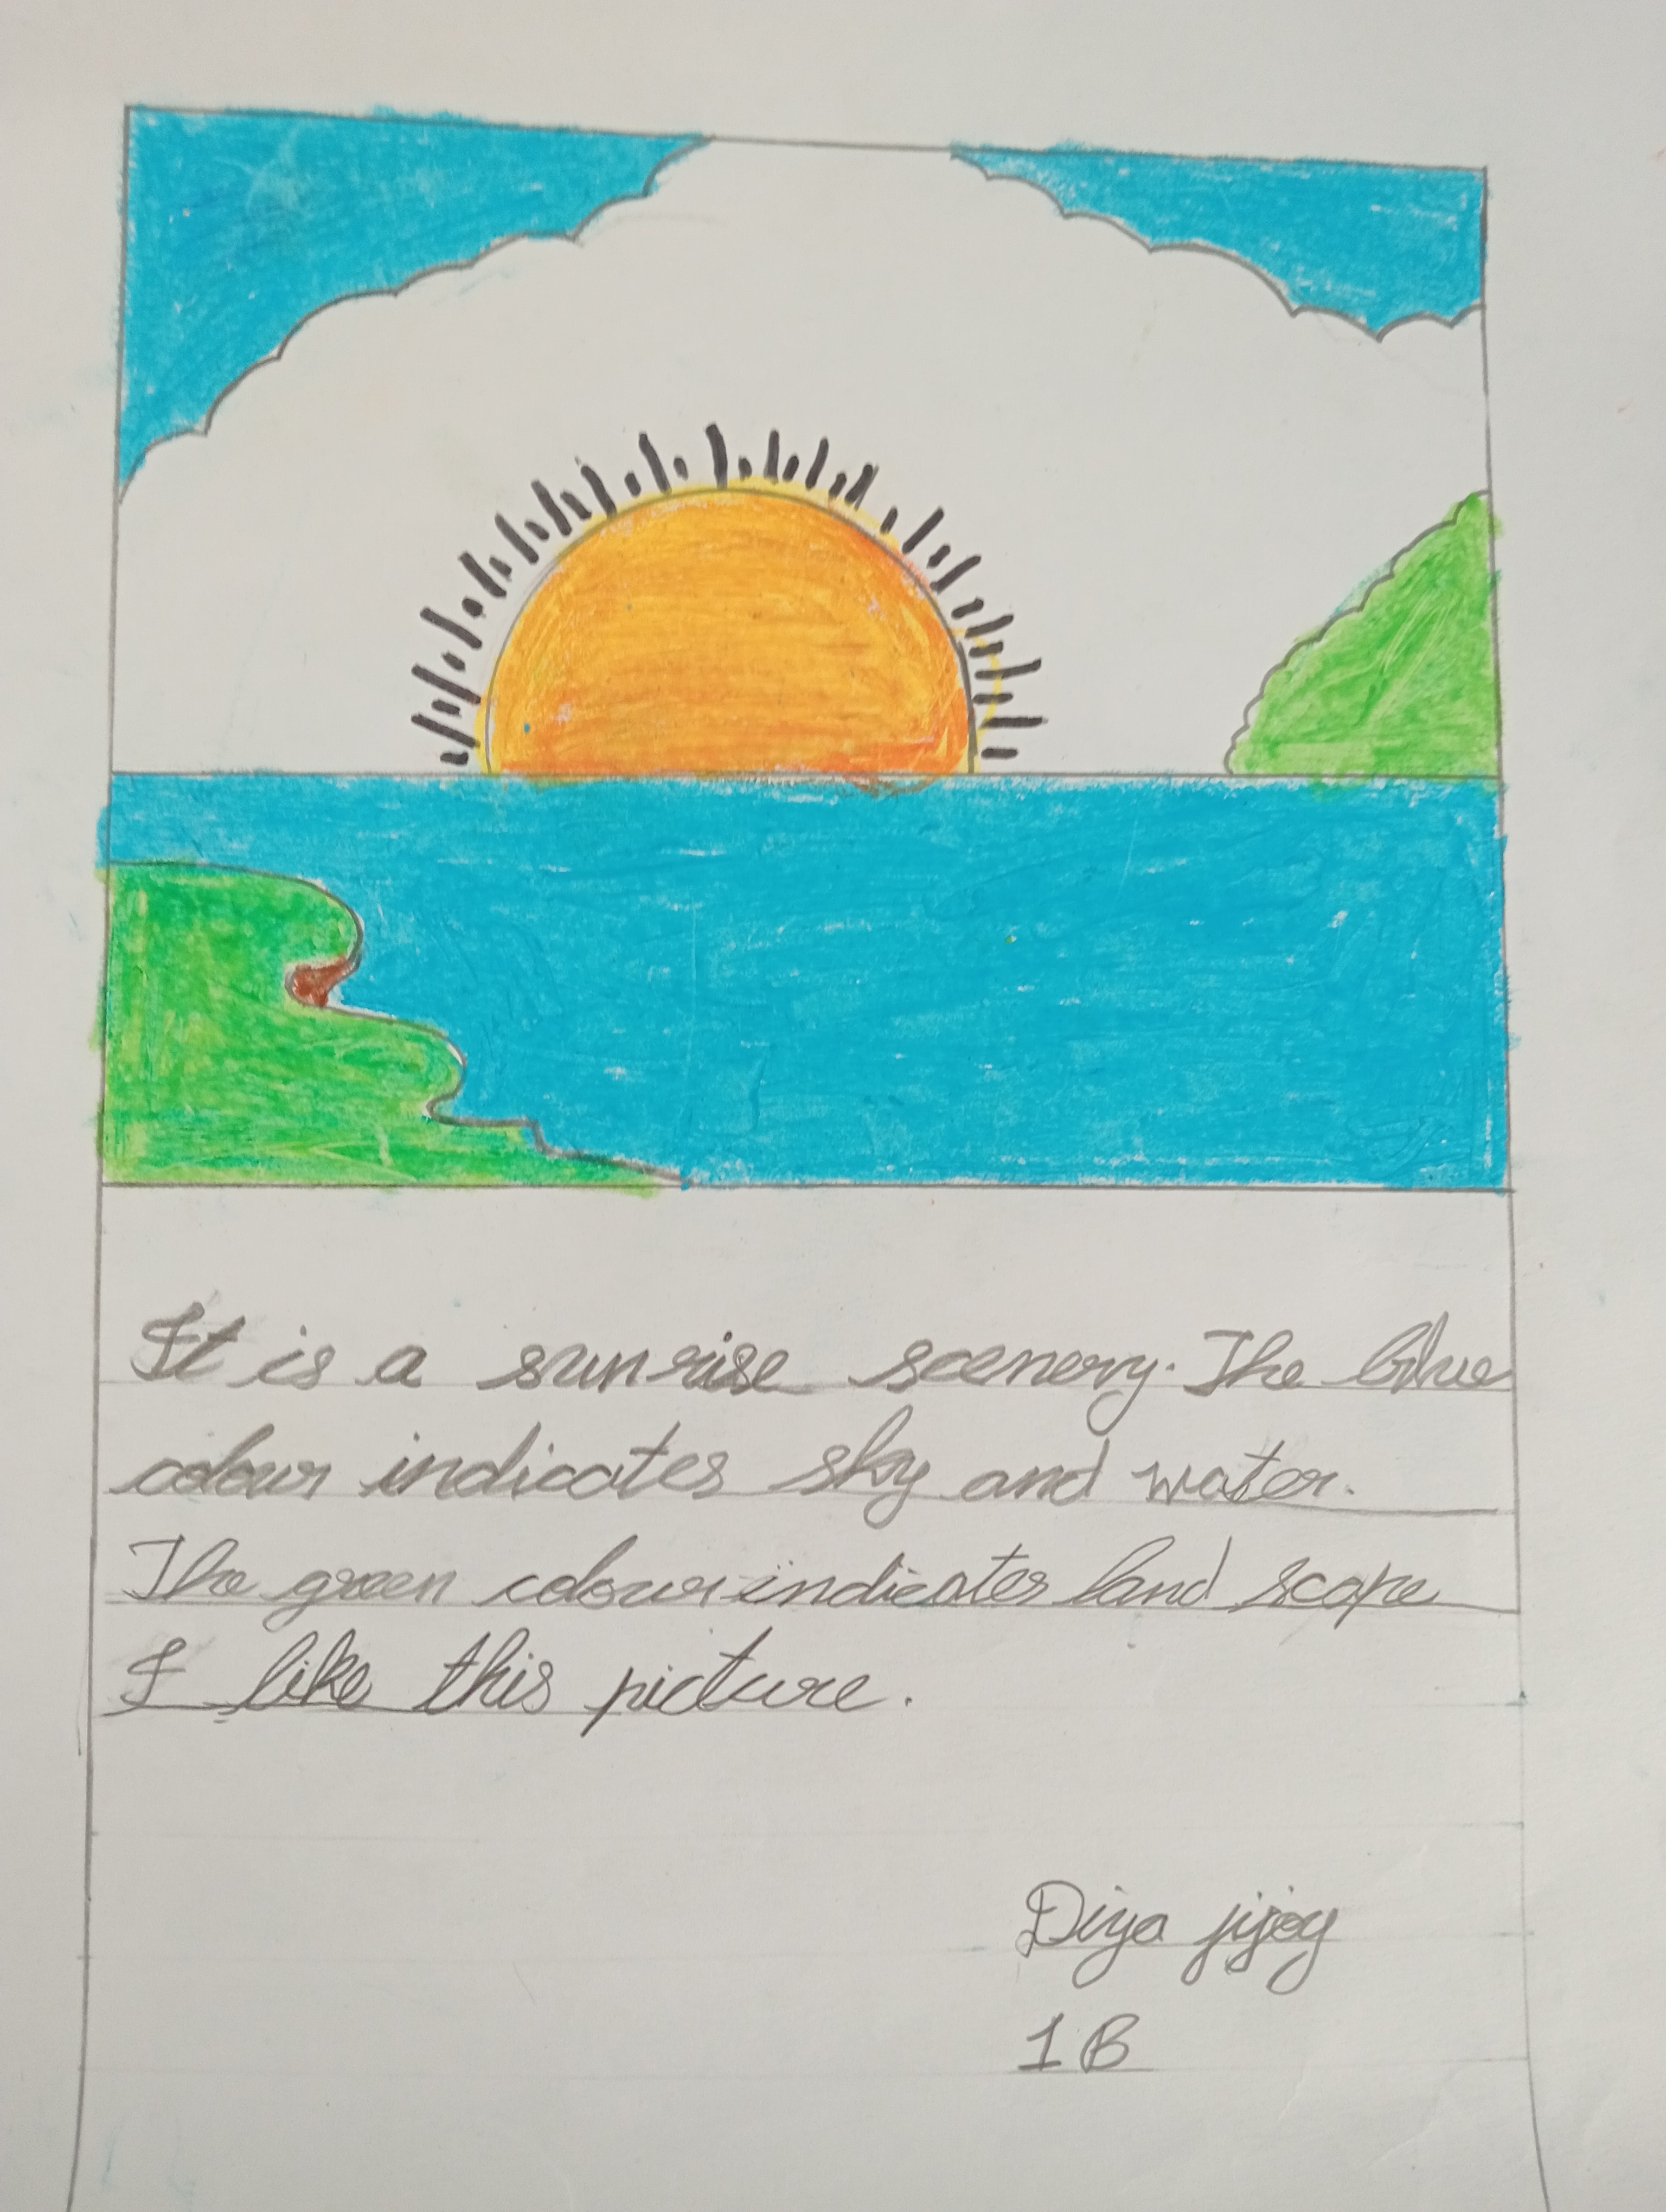 It is a sunrise scenery. The blue
colour indicates sky and water.
The green colour indicates land scape
I like this picture.
Diya jijoy
1B